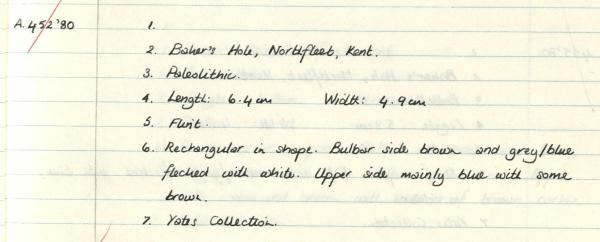 A.452'80 1.
2. Baker's Hole, Northfleet, Kent.
3. Paleolithic.
4. Length: 6.4cm Width: 4.9cm
5. Flint.
6. Rectangular in shape. Bulbar side brown and grey/blue
flecked with white. Upper side mainly blue with some
brown.
7. Yates Collection.